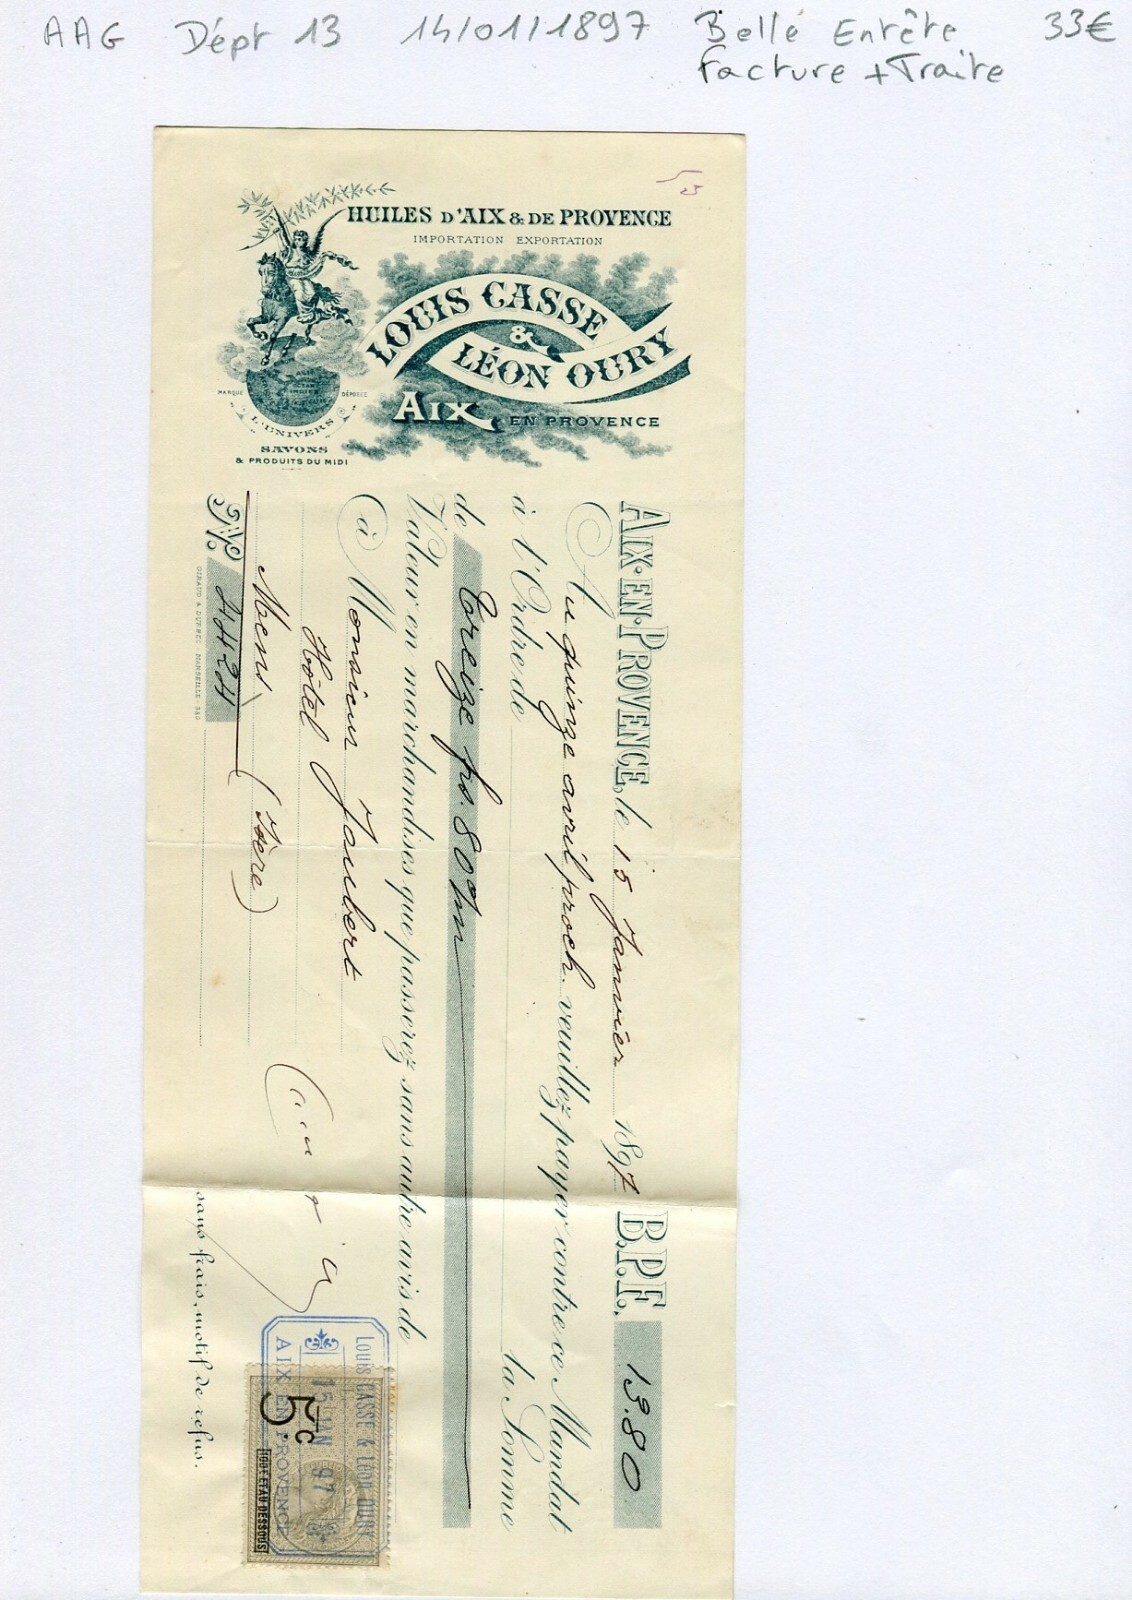 AAG Dépt 13 14/01/1897 Belle Entête 33€
Facture + Traite
HUILES D'AIX & DE PROVENCE
IMPORTATION EXPORTATION
LOUIS CASSE
&
LÉON OURY
AIX EN PROVENCE
MARQUE DÉPOSÉE
L'UNIVERS
SAVONS
& PRODUITS DU MIDI
AIX-EN-PROVENCE, le 15 Janvier 1897 B.P.F. 13.80
Au quinze avril proch. veuillez payer contre ce Mandat
à l'Ordre de la Somme
de treize frs. 80
Valeur en marchandises que passerez sans autre avis de
à Monsieur Joubert
Hôtel
Mens (Isère)
No.
MARSEILLE
sans frais, motif de refus.
LOUIS CASSE & LÉON OURY
15 JAN 97
AIX EN PROVENCE
5c
100F ET AU DESSOUS